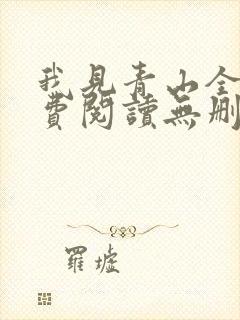 我見青山全
費閱讀無刪
羅墟